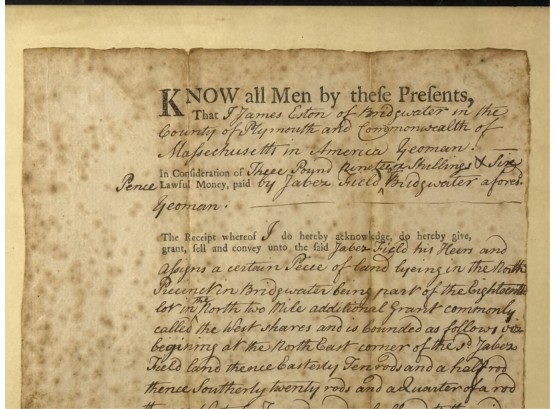 KNOW all Men by theſe Preſents,
That I James Eston of Bridgwater in the
County of Plymouth and Commonwealth of
Massechusetts in America Yeoman.
In Consideration of Three Pound Nineteen Shillings & Six
Pence Lawful Money, paid by Jabez Field Bridgwater afores.d
Yeoman.
The Receipt whereof I do hereby acknowledge, do hereby give,
grant, ſell and convey unto the ſaid Jabez Field his Heirs and
Assigns a certain Peice of land lyeing in the North
Precinct in Bridgwater being part of the Eighteenth
lot in the North two Mile additional Grant commonly
called the West shares and is bounded as follows viz
begining at the North East corner of the sd. Jabez
Field land thence Easterly Ten rods and a half rod
thence Southerly twenty rods and a Quarter of a rod